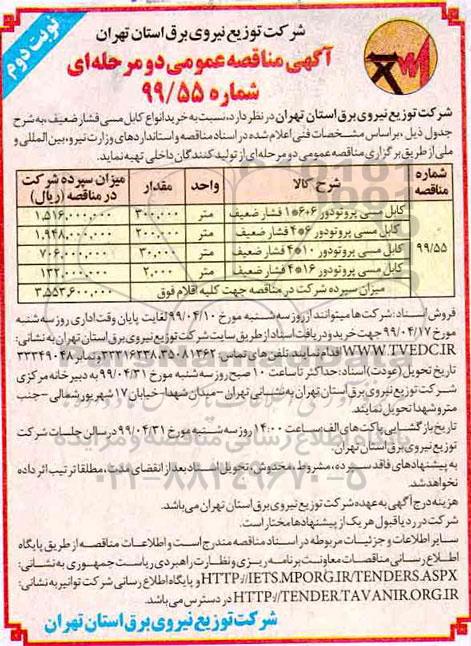 نوبت دوم
شرکت توزیع نیروی برق استان تهران
آگهی مناقصه عمومی دو مرحله‌ای
شماره ۹۹/۵۵
شرکت توزیع نیروی برق استان تهران در نظر دارد، نسبت به خرید انواع کابل مسی فشار ضعیف، به شرح
جدول ذیل، براساس مشخصات فنی اعلام شده در اسناد مناقصه و استانداردهای وزارت نیرو، بین المللی و
ملی از طریق برگزاری مناقصه عمومی دو مرحله‌ای از تولید کنندگان داخلی تهیه نماید.
شماره مناقصه | شرح کالا | واحد | مقدار | میزان سپرده شرکت در مناقصه (ریال)
۹۹/۵۵ | کابل مسی پروتودور ۶*۱ فشار ضعیف | متر | ۳۰۰,۰۰۰ | ۱,۵۱۶,۰۰۰,۰۰۰
کابل مسی پروتودور ۶*۴ فشار ضعیف | متر | ۲۰۰,۰۰۰ | ۱,۹۴۸,۰۰۰,۰۰۰
کابل مسی پروتودور ۱۰*۴ فشار ضعیف | متر | ۳۰,۰۰۰ | ۷۰۶,۰۰۰,۰۰۰
کابل مسی پروتودور ۱۶*۴ فشار ضعیف | متر | ۲,۰۰۰ | ۱۳۲,۰۰۰,۰۰۰
میزان سپرده شرکت در مناقصه جهت کلیه اقلام فوق | ۳,۵۵۳,۶۰۰,۰۰۰
فروش اسناد: شرکت‌ها میتوانند از روز سه شنبه مورخ ۹۹/۰۴/۱۰ لغایت پایان وقت اداری روز سه شنبه
مورخ ۹۹/۰۴/۱۷ جهت خرید و دریافت اسناد از طریق سایت شرکت توزیع نیروی برق استان تهران به نشانی:
WWW.TVEDC.IR اقدام نمایند. تلفن های تماس: ۳۵۰۸۱۳۶۲ـ۳۳۳۱۶۲۳۸ و نمابر ۳۳۳۴۹۰۴۸
تاریخ تحویل (عودت) اسناد: حداکثر تا ساعت ۱۰ صبح روز سه شنبه مورخ ۹۹/۰۴/۳۱ به دبیرخانه مرکزی
شرکت توزیع نیروی برق استان تهران به نشانی تهران - میدان شهدا - خیابان ۱۷ شهریور شمالی - جنب
مترو شهدا تحویل نمایند.
تاریخ بازگشایی پاکت های الف: ساعت ۱۴:۰۰ روز سه شنبه مورخ ۹۹/۰۴/۳۱ در سالن جلسات شرکت
توزیع نیروی برق استان تهران.
به پیشنهادهای فاقد سپرده، مشروط، مخدوش و تحویل اسناد بعد از انقضای مدت، مطلقا ترتیب اثر داده
نخواهد شد.
هزینه درج آگهی به عهده شرکت توزیع نیروی برق استان تهران می‌باشد.
شرکت در رد یا قبول هر یک از پیشنهادها مختار است.
سایر اطلاعات و جزئیات مربوطه در اسناد مناقصه مندرج است و اطلاعات مناقصه از طریق پایگاه
اطلاع رسانی مناقصات معاونت برنامه ریزی و نظارت راهبردی ریاست جمهوری به نشانی:
HTTP://IETS.MPORG.IR/TENDERS.ASPX و پایگاه اطلاع رسانی شرکت توانیر به نشانی:
HTTP://TENDER.TAVANIR.ORG.IR در دسترس می باشد.
شرکت توزیع نیروی برق استان تهران
پایگاه اطلاع رسانی مناقصه و مزایده
۰۲۱-۸۸۳۴۹۶۷۰-۵